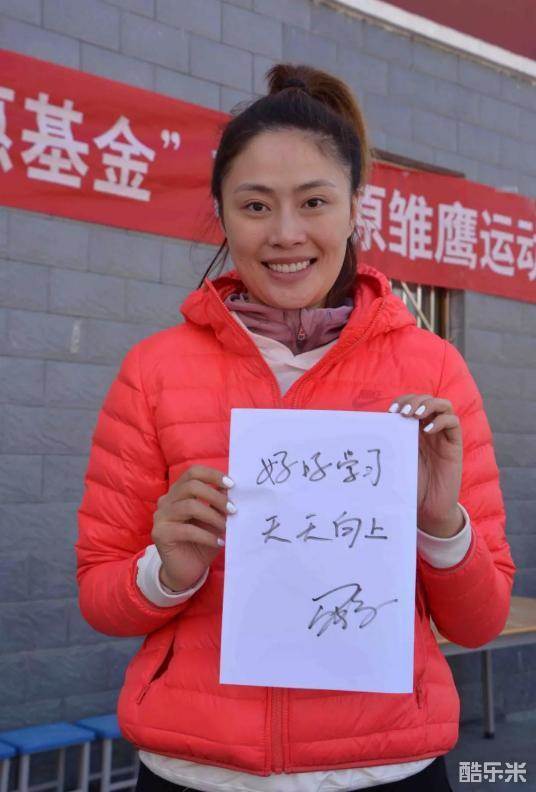 惠基金”
原雏鹰运动
好好学习
天天向上
酷乐米